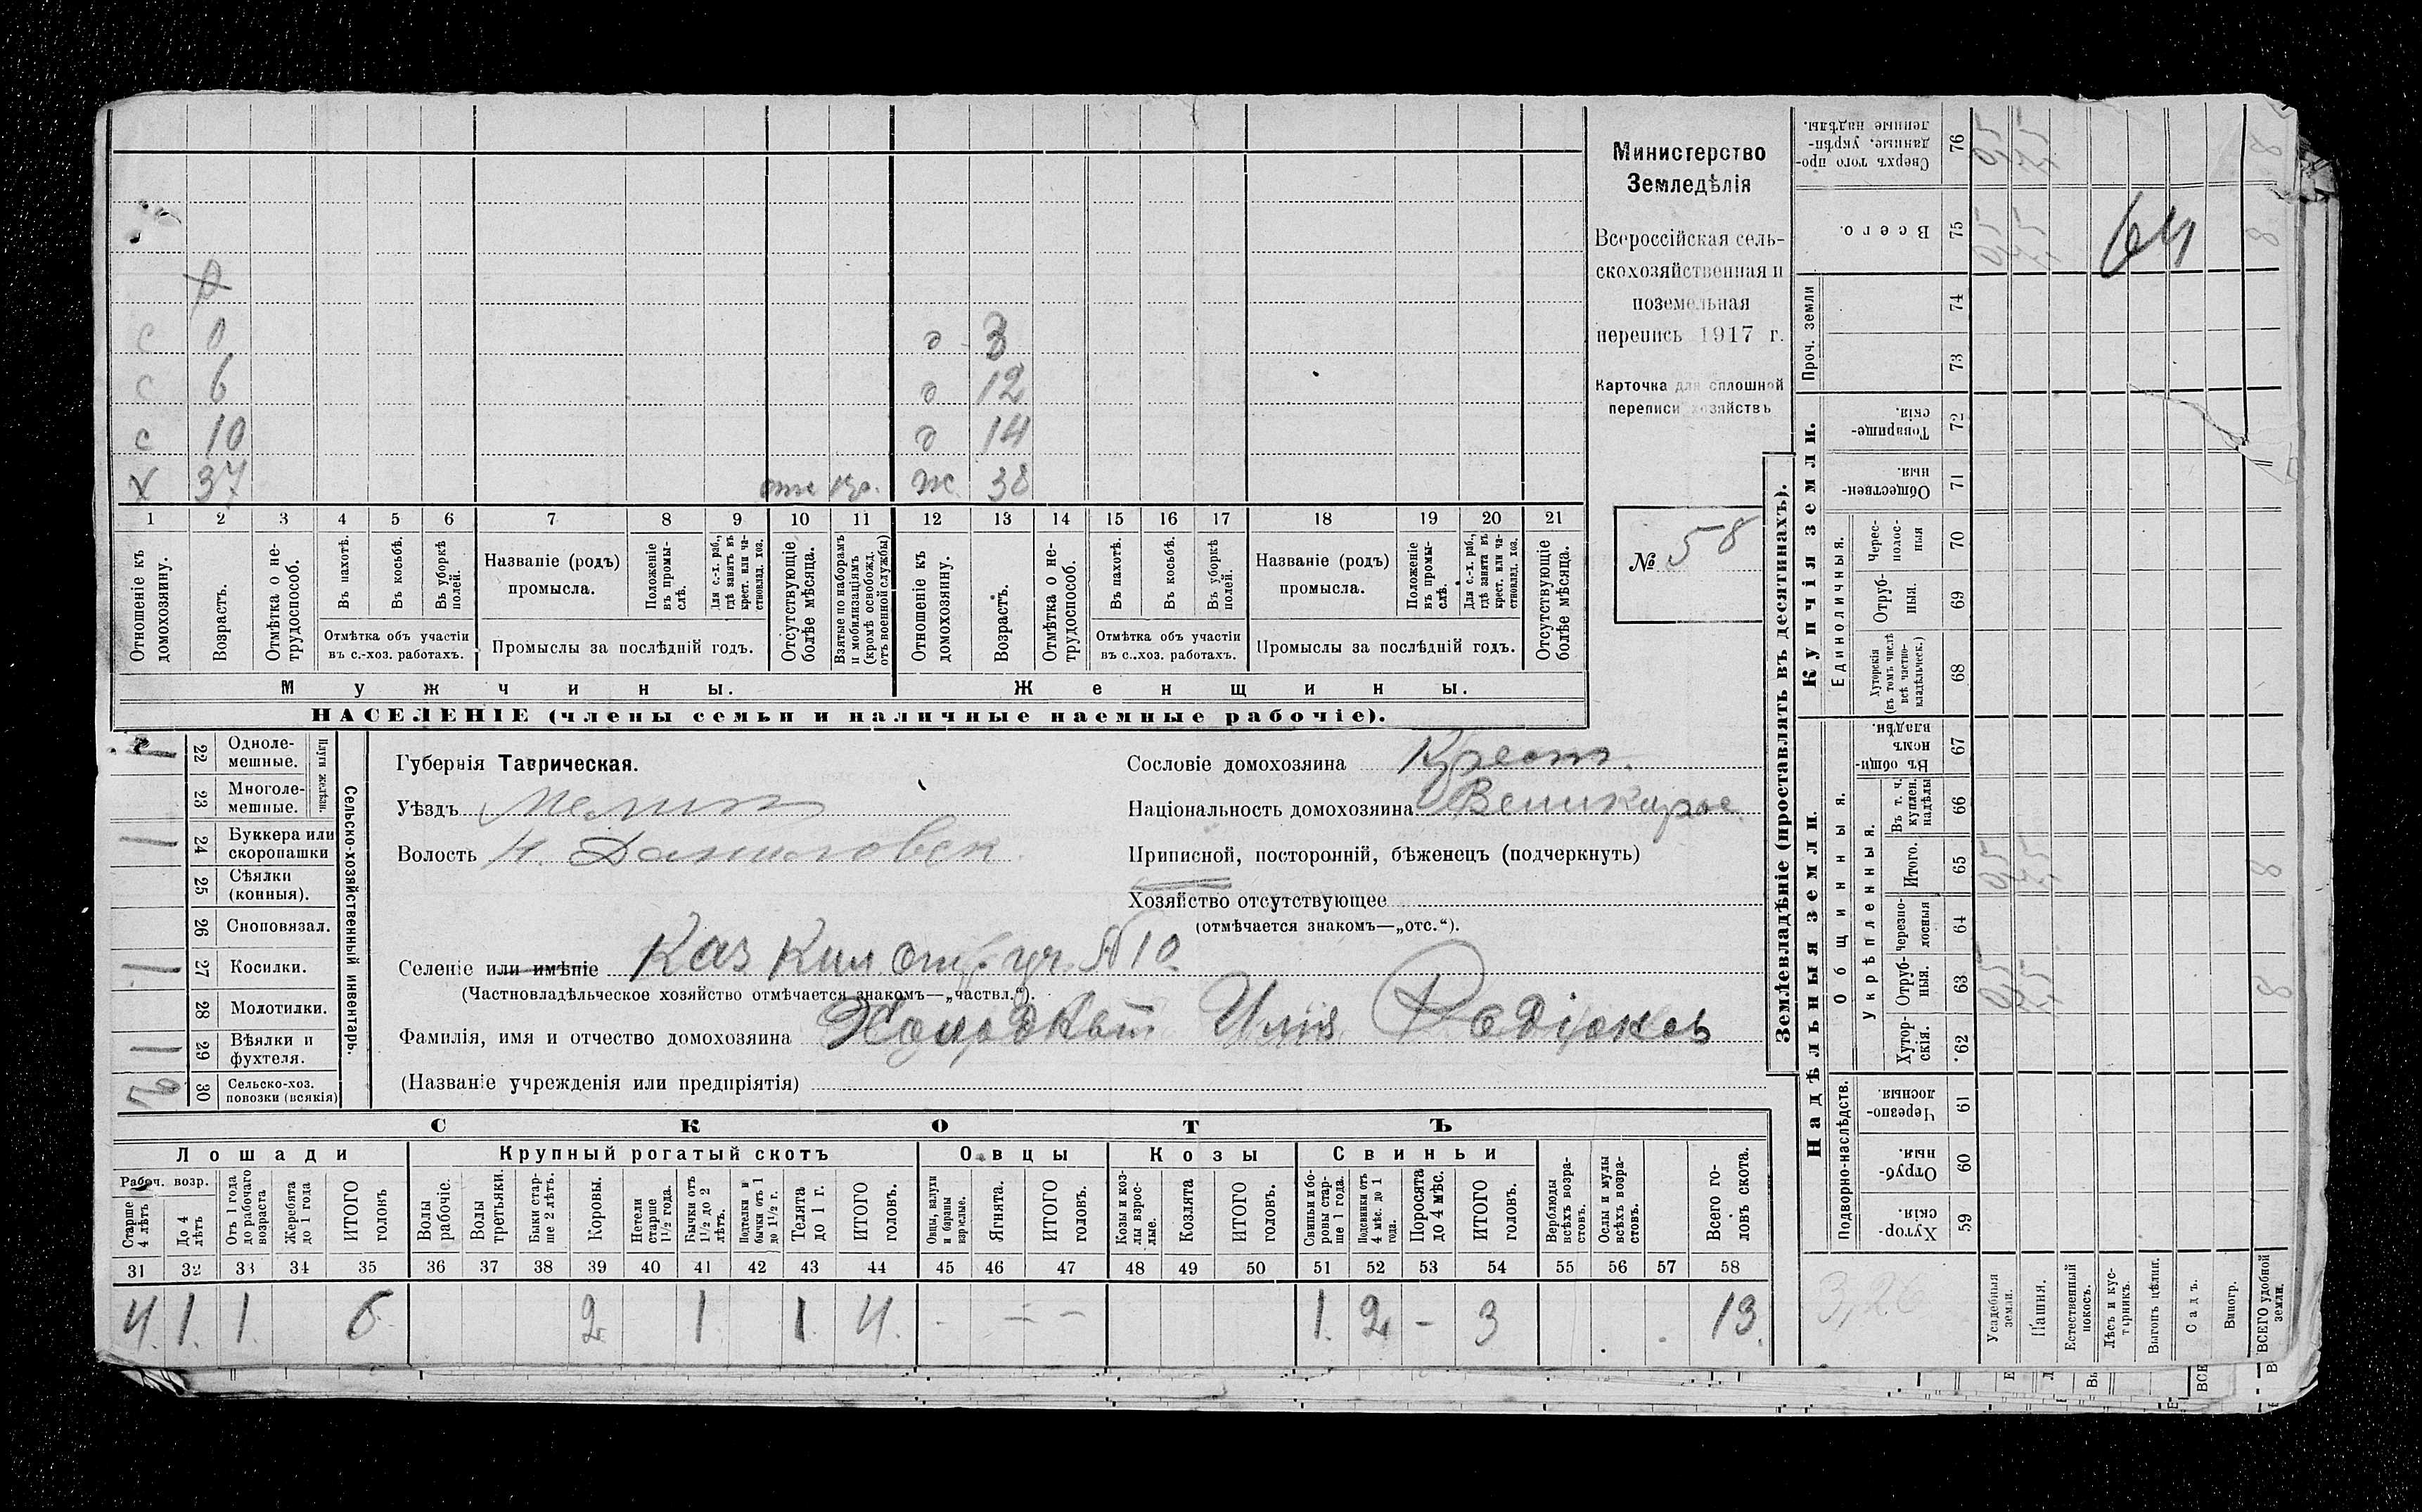 Министерство
Земледѣлія
Всероссійская сель-
скохозяйственная и
поземельная
перепись 1917 г.
Карточка для сплошной
переписи хозяйствъ
№ 58
с 0 д 3
с 6 д 12
с 10 д 14
х 37 ж 38
1 2 3 4 5 6 7 8 9 10 11 12 13 14 15 16 17 18 19 20 21
Отношеніе къ домохозяину.
Возрастъ.
Отмѣтка о не-трудоспособ.
Въ пахотѣ.
Въ косьбѣ.
Въ уборкѣ полей.
Отмѣтка объ участіи
въ с.-хоз. работахъ.
Названіе (родъ)
промысла.
Положеніе въ промы-слѣ.
Для с.-х. раб., гдѣ занятъ въ крест. или ча-ствовлад. хоз.
Промыслы за послѣдній годъ.
Отсутствующіе болѣе мѣсяца.
Взятые по наборамъ и мобилизаціямъ (кромѣ освобожд. отъ военной службы)
Отношеніе къ домохозяину.
Возрастъ.
Отмѣтка о не-трудоспособ.
Въ пахотѣ.
Въ косьбѣ.
Въ уборкѣ полей.
Отмѣтка объ участіи
въ с..хоз. работахъ.
Названіе (родъ)
промысла.
Положеніе въ промы-слѣ.
Для с.-х. раб., гдѣ занята въ крест. или ча-ствовлад. хоз.
Промыслы за послѣдній годъ.
Отсутствующіе болѣе мѣсяца.
Мужчины.
Женщины.
НАСЕЛЕНІЕ (члены семьи и наличные наемные рабочіе).
Сельско-хозяйственный инвентарь.
Плуги желѣзн.
22 Одноле-мешные.
23 Многоле-мешные.
24 Буккера или скоропашки
25 Сѣялки (конныя).
26 Сноповязал.
27 Косилки.
28 Молотилки.
29 Вѣялки и фухтеля.
30 Сельско-хоз. повозки (всякія)
Губернія Таврическая.
Уѣздъ Мелит
Волость Н. Даниловск
Сословіе домохозяина Крест.
Національность домохозяина Великорос.
Приписной, посторонній, бѣженецъ (подчеркнуть)
Хозяйство отсутствующее
(отмѣчается знакомъ—„отс.“).
Селеніе или имѣніе Каз уч. №10
(Частновладѣльческое хозяйство отмѣчается знакомъ—„частвл.“).
Фамилія, имя и отчество домохозяина Илія
(Названіе учрежденія или предпріятія)
СКОТЪ
Лошади
Крупный рогатый скотъ
Овцы
Козы
Свиньи
Рабоч. возр.
Старше 4 лѣтъ
До 4 лѣтъ
Отъ 1 года до рабочаго возраста
Жеребята до 1 года
ИТОГО головъ
Волы рабочіе.
Волы третьяки.
Быки стар-ше 2 лѣтъ.
Коровы.
Нетели старше 1½ года.
Бычки отъ 1½ до 2 лѣтъ.
Подтелки и бычки отъ 1 до 1½ г.
Телята до 1 г.
ИТОГО головъ.
Овцы, валухи и бараны взрослые.
Ягнята.
ИТОГО головъ.
Козы и коз-лы взрос-лые.
Козлята
ИТОГО головъ.
Свиньи и бо-ровы стар-ше 1 года.
Подсвинки отъ 4 мѣс. до 1 года.
Поросята до 4 мѣс.
ИТОГО головъ.
Верблюды всѣхъ возра-стовъ.
Ослы и мулы всѣхъ возра-стовъ.
Всего го-ловъ скота.
31 32 33 34 35 36 37 38 39 40 41 42 43 44 45 46 47 48 49 50 51 52 53 54 55 56 57 58
4. 1. 1. 6 2 1 1 4. - = - 1. 2 - 3 13.
Землевладѣніе (проставлять въ десятинахъ).
Надѣльныя земли.
Купчія земли.
Проч. земли
Подворно-наслѣдств.
Общинныя.
Укрѣпленныя.
Единоличныя.
Хутор-скія. 59
Отруб-ныя. 60
Черезпо-лосныя 61
Хутор-скія. 62
Отруб-ныя. 63
Черезпо-лосныя 64
Итого. 65
Въ т. ч. куплен. надѣлы 66
Въ общи-номъ владѣн. 67
Хуторскія (въ томъ числѣ всѣ частно-владѣльческ.) 68
Отруб-ныя. 69
Черес-полос-ныя 70
Обществен-ныя. 71
Товарище-скія. 72
73
74
Всего. 75
Сверхъ того про-данные, укрѣп-ленные надѣлы. 76
64
3,26
Усадебныя земли.
Пашня.
Естественный покосъ.
Лѣсъ и кус-тарникъ.
Выгонъ цѣлин.
Садъ.
Виногр.
ВСЕГО удобной земли.
8
8
8
8